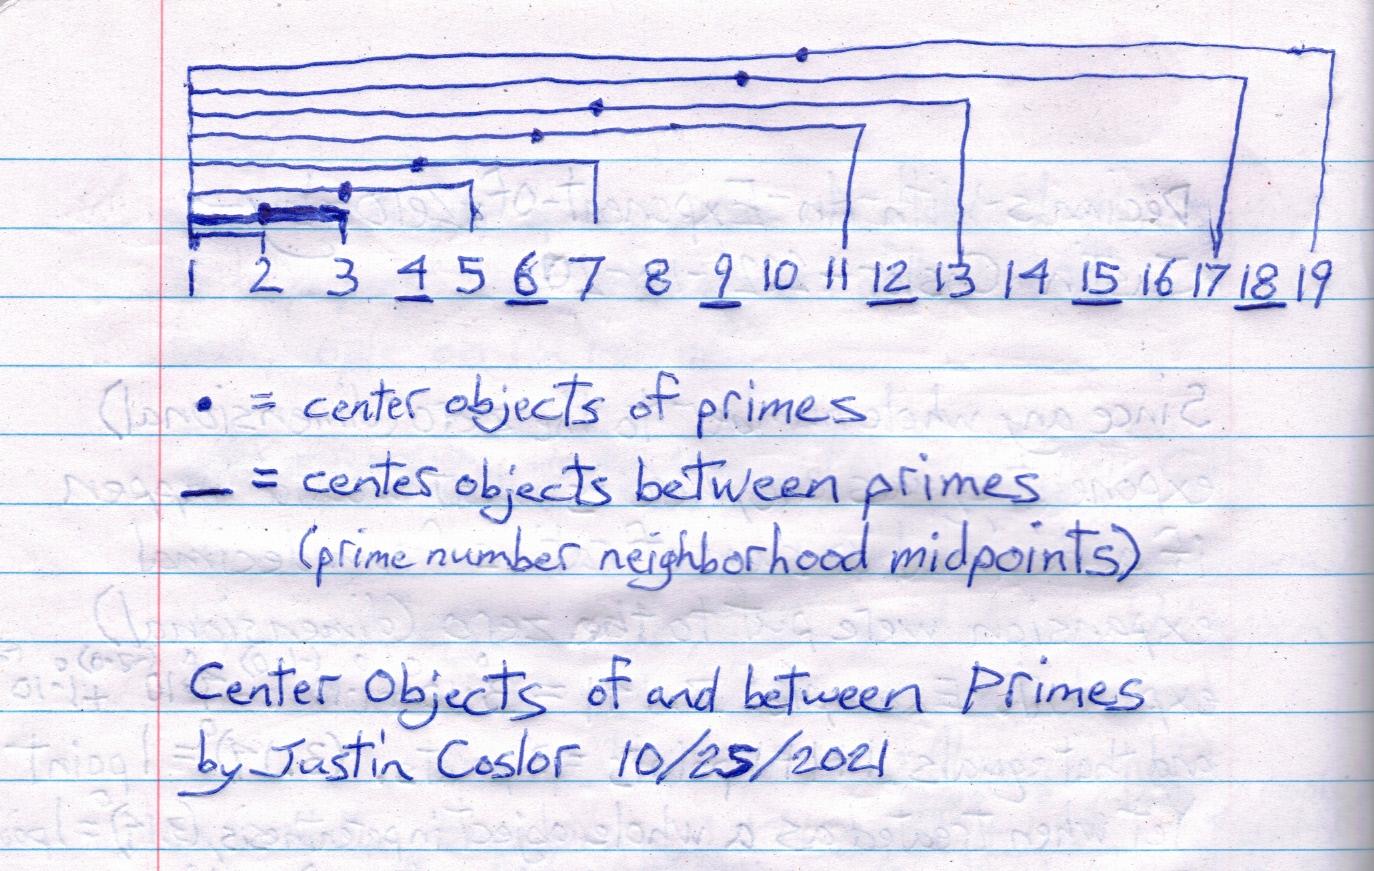 1 2 3 4 5 6 7 8 9 10 11 12 13 14 15 16 17 18 19
• = center objects of primes
— = center objects between primes
(prime number neighborhood midpoints)
Center Objects of and between Primes
by Justin Coslor 10/25/2021